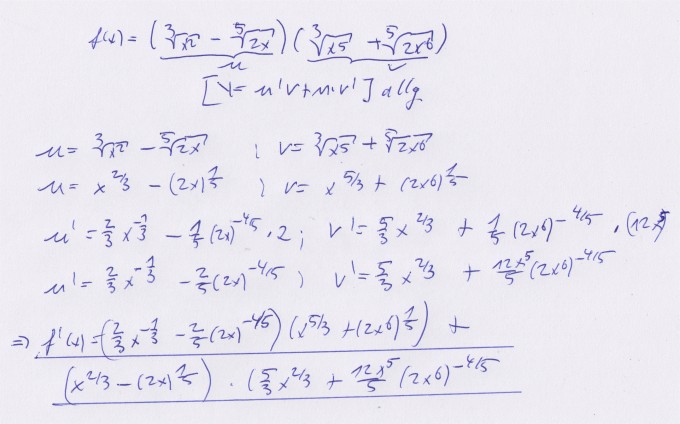 f(x) = (∛x² - ⁵√2x) (∛x⁵ + ⁵√2x⁶)
u v
[Y = u'v + u·v'] allg
u = ∛x² - ⁵√2x ; v = ∛x⁵ + ⁵√2x⁶
u = x^2/3 - (2x)^1/5 ; v = x^5/3 + (2x6)^1/5
u' = 2/3 x^-1/3 - 1/5 (2x)^-4/5 · 2 ; v' = 5/3 x^2/3 + 1/5 (2x6)^-4/5 · (12x^5)
u' = 2/3 x^-1/3 - 2/5 (2x)^-4/5 ; v' = 5/3 x^2/3 + 12x^5/5 (2x6)^-4/5
⇒ f'(x) = (2/3 x^-1/3 - 2/5 (2x)^-4/5) (x^5/3 + (2x6)^1/5) +
(x^2/3 - (2x)^1/5) · (5/3 x^2/3 + 12x^5/5 (2x6)^-4/5